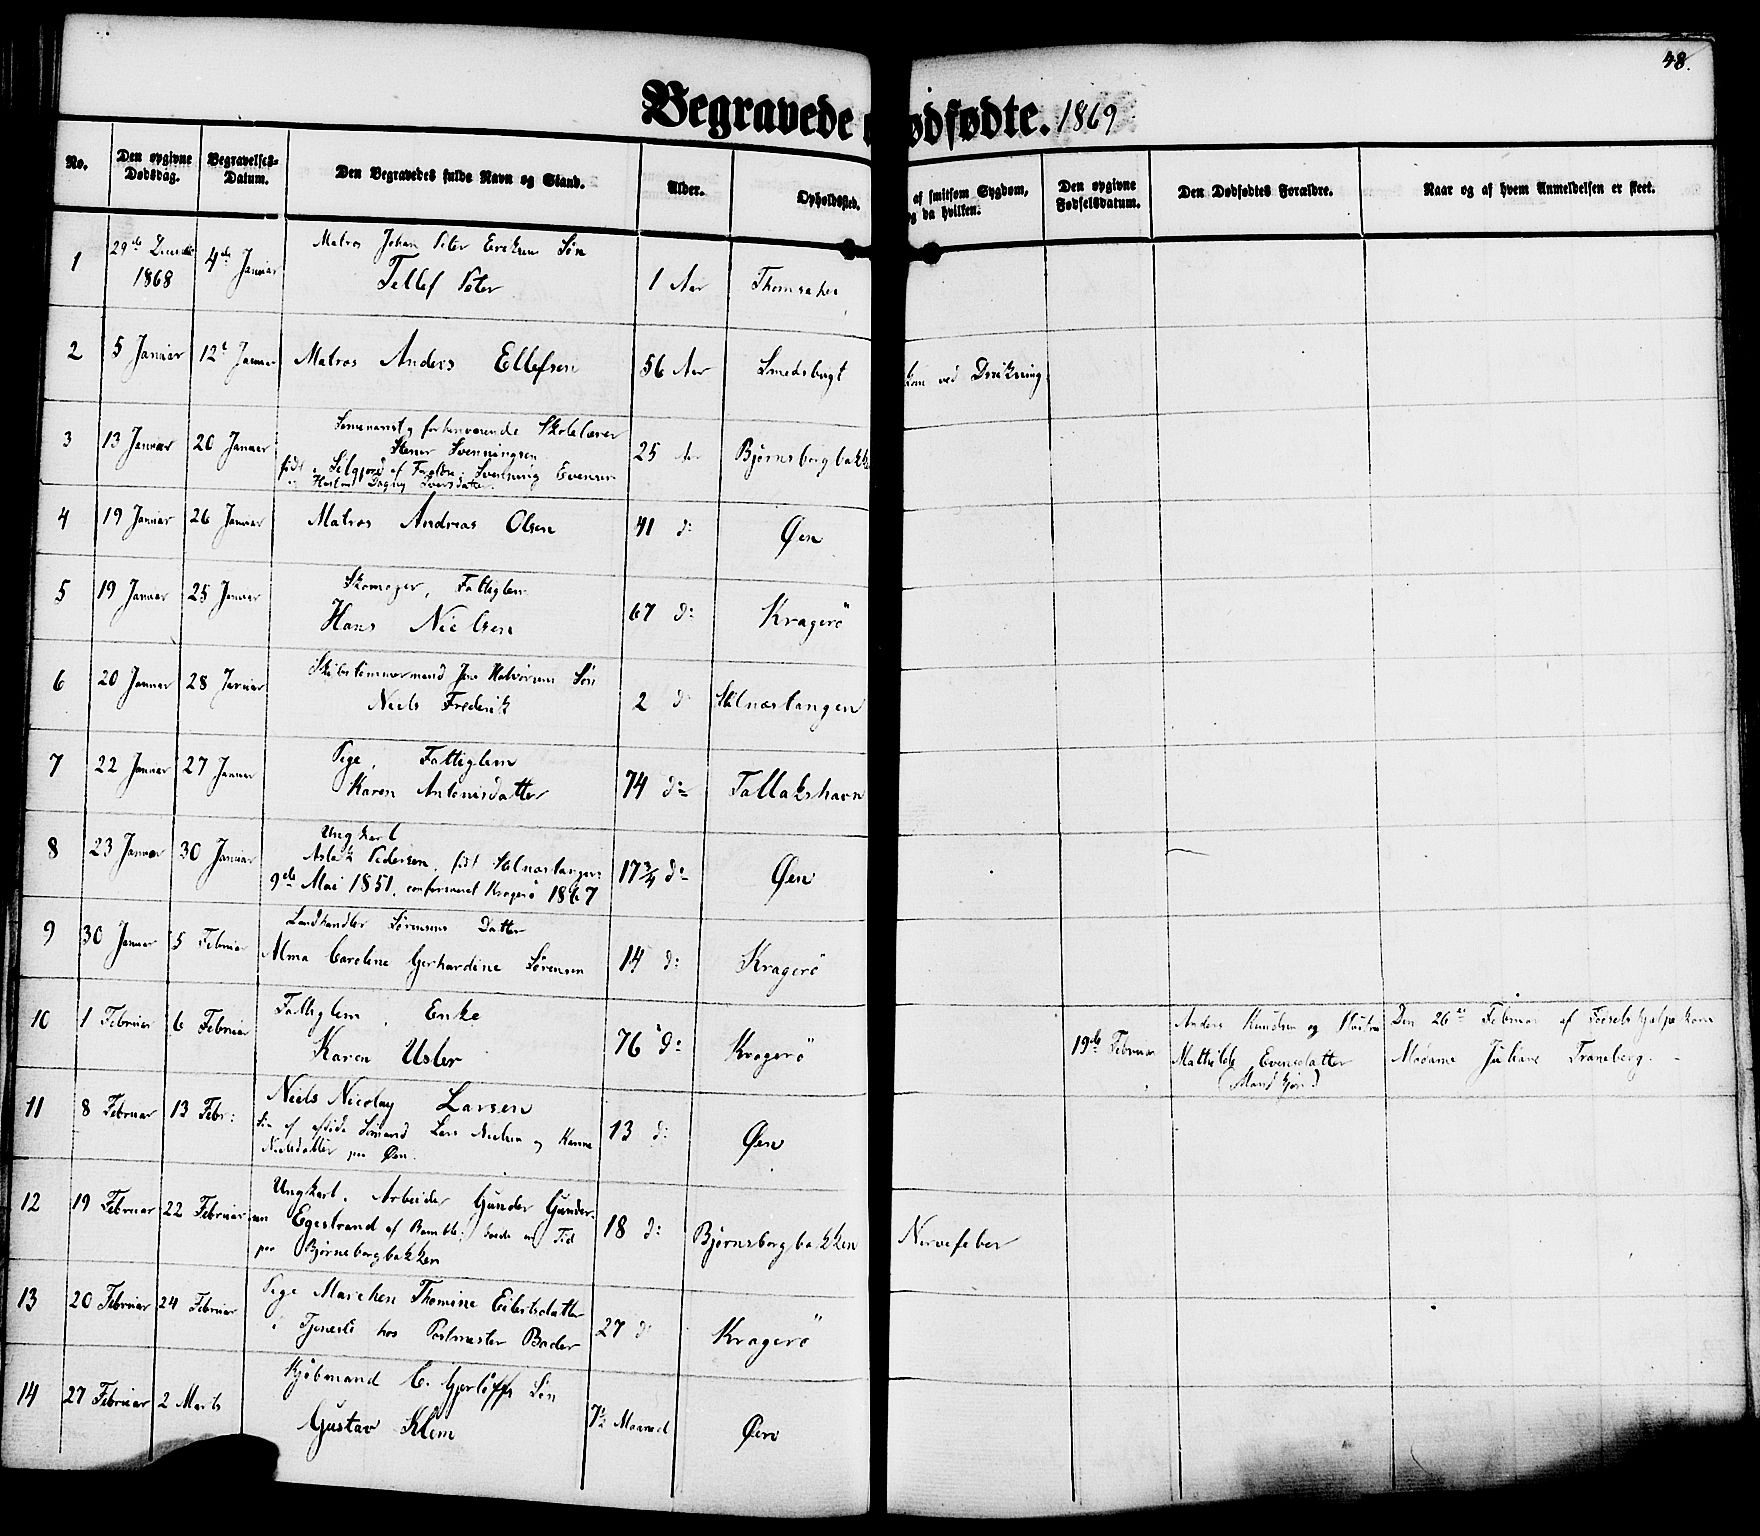 48.
Begravede ødfødte. 1869
No.
Den opgivne Dødsdag.
Begravelses-Datum.
Den Begravedes fulde Navn og Stand.
Alder.
Opholdssted.
af smitsom Sygdom,
og da hvilken:
Den opgivne Fødselsdatum.
Den Dødfødtes Forældre.
Naar og af hvem Anmeldelsen er skeet.
1 29de Decembr 1868 4de Januar Matros Johan Peter Ericksens Søn
Tellef Peter 1 Aar
2 5 Januar 12t Januar Matros Anders Ellefsen 56 Aar Smedsbugt ved Drikning
3 13 Januar 20 Januar forhenværende Skolelærer
Svenningsen
født i Silgjord af Forældre: Svenning Evensen
25 Aar Bjørnsborgbakk
4 19 Januar 26 Januar Matros Andreas Olsen 41 do Øen
5 19 Januar 25 Januar Skomager, Fattiglem
Hans Nielsen 67 do Kragerö
6 20 Januar 28 Januar Skibstømmermand Jens Halvorsens Søn
Niels Frederik 2 do Stilnæstangen
7 22 Januar 27 Januar Pige, Fattiglem
Karen Antonisdatter 74 do Tallakshavn
8 23 Januar 30 Januar Ungkarl
Aslak Pedersen, født Stilnæstangen
9de Mai 1851, confirmeret Kragerö 1867 17 3/4 do Øen
9 30 Januar 5 Februar Landhandler Sörensens Datter
Alma Caroline Gerhardine Sörensen 14 do Kragerö
10 1 Februar 6 Februar Fattiglem, Enke
Karen Usler 76 do Kragerö
19de Februar Anders Knudsen og Hustru
Mathilde Evensdatter
(Mandkjøn) Den 26de Februar af Fødselshjælperskone
Madame Juliane Traneberg.
11 8 Februar 13 Febr: Niels Nicolay Larsen
Søn af afdøde Sømand Lars Nielsen og
Nielsdatter paa Øen. 13 do Øen
12 19 Februar 22 Februar Ungkarl, Arbeider Gunder Gunder-
sen Egestrand af Bamble, Tid
paa Bjørnsborgbakken 18 do Bjørnsborgbakken Nervefeber
13 20 Februar 24 Februar Pige Marichen Thomine Eilertsdatter
i Tjeneste hos Postmester Bader 27 do Kragerö
14 27 Februar 2 Marts Kjöbmand C. Gjerløffs Søn
Gustav Klem 7½ Maaned Øen